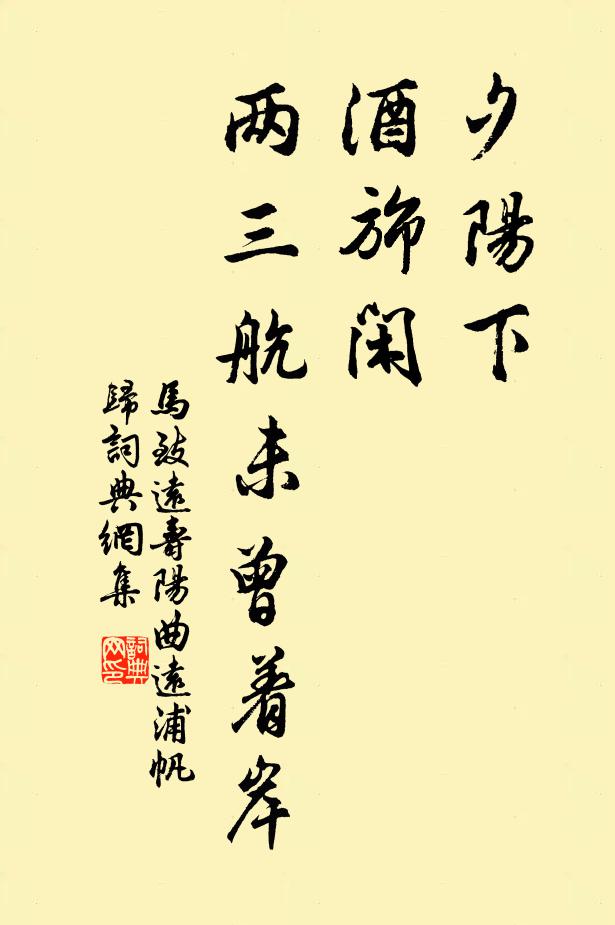 夕陽下
酒旆閑
两三航未曾着岸
馬致遠壽陽曲遠浦帆
歸詞典網集
詞典
网印